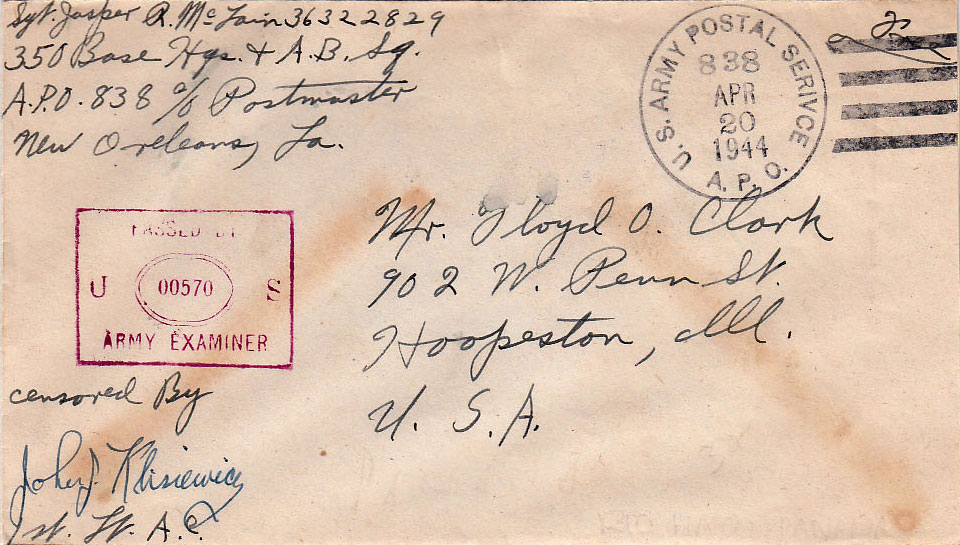 Sgt. Jasper R. McLain 36322829
350 Base Hqs. & A.B. Sq.
A.P.O. 838 c/o Postmaster
New Orleans, La.
U.S. ARMY POSTAL SERIVCE
838
APR
20
1944
A. P. O.
Mr. Floyd O. Clark
902 W. Penn St.
Hoopeston, Ill.
U. S. A.
PASSED BY
U 00570 S
ARMY EXAMINER
censored By
John J. Klisiewicz
1st. Lt. A.C.